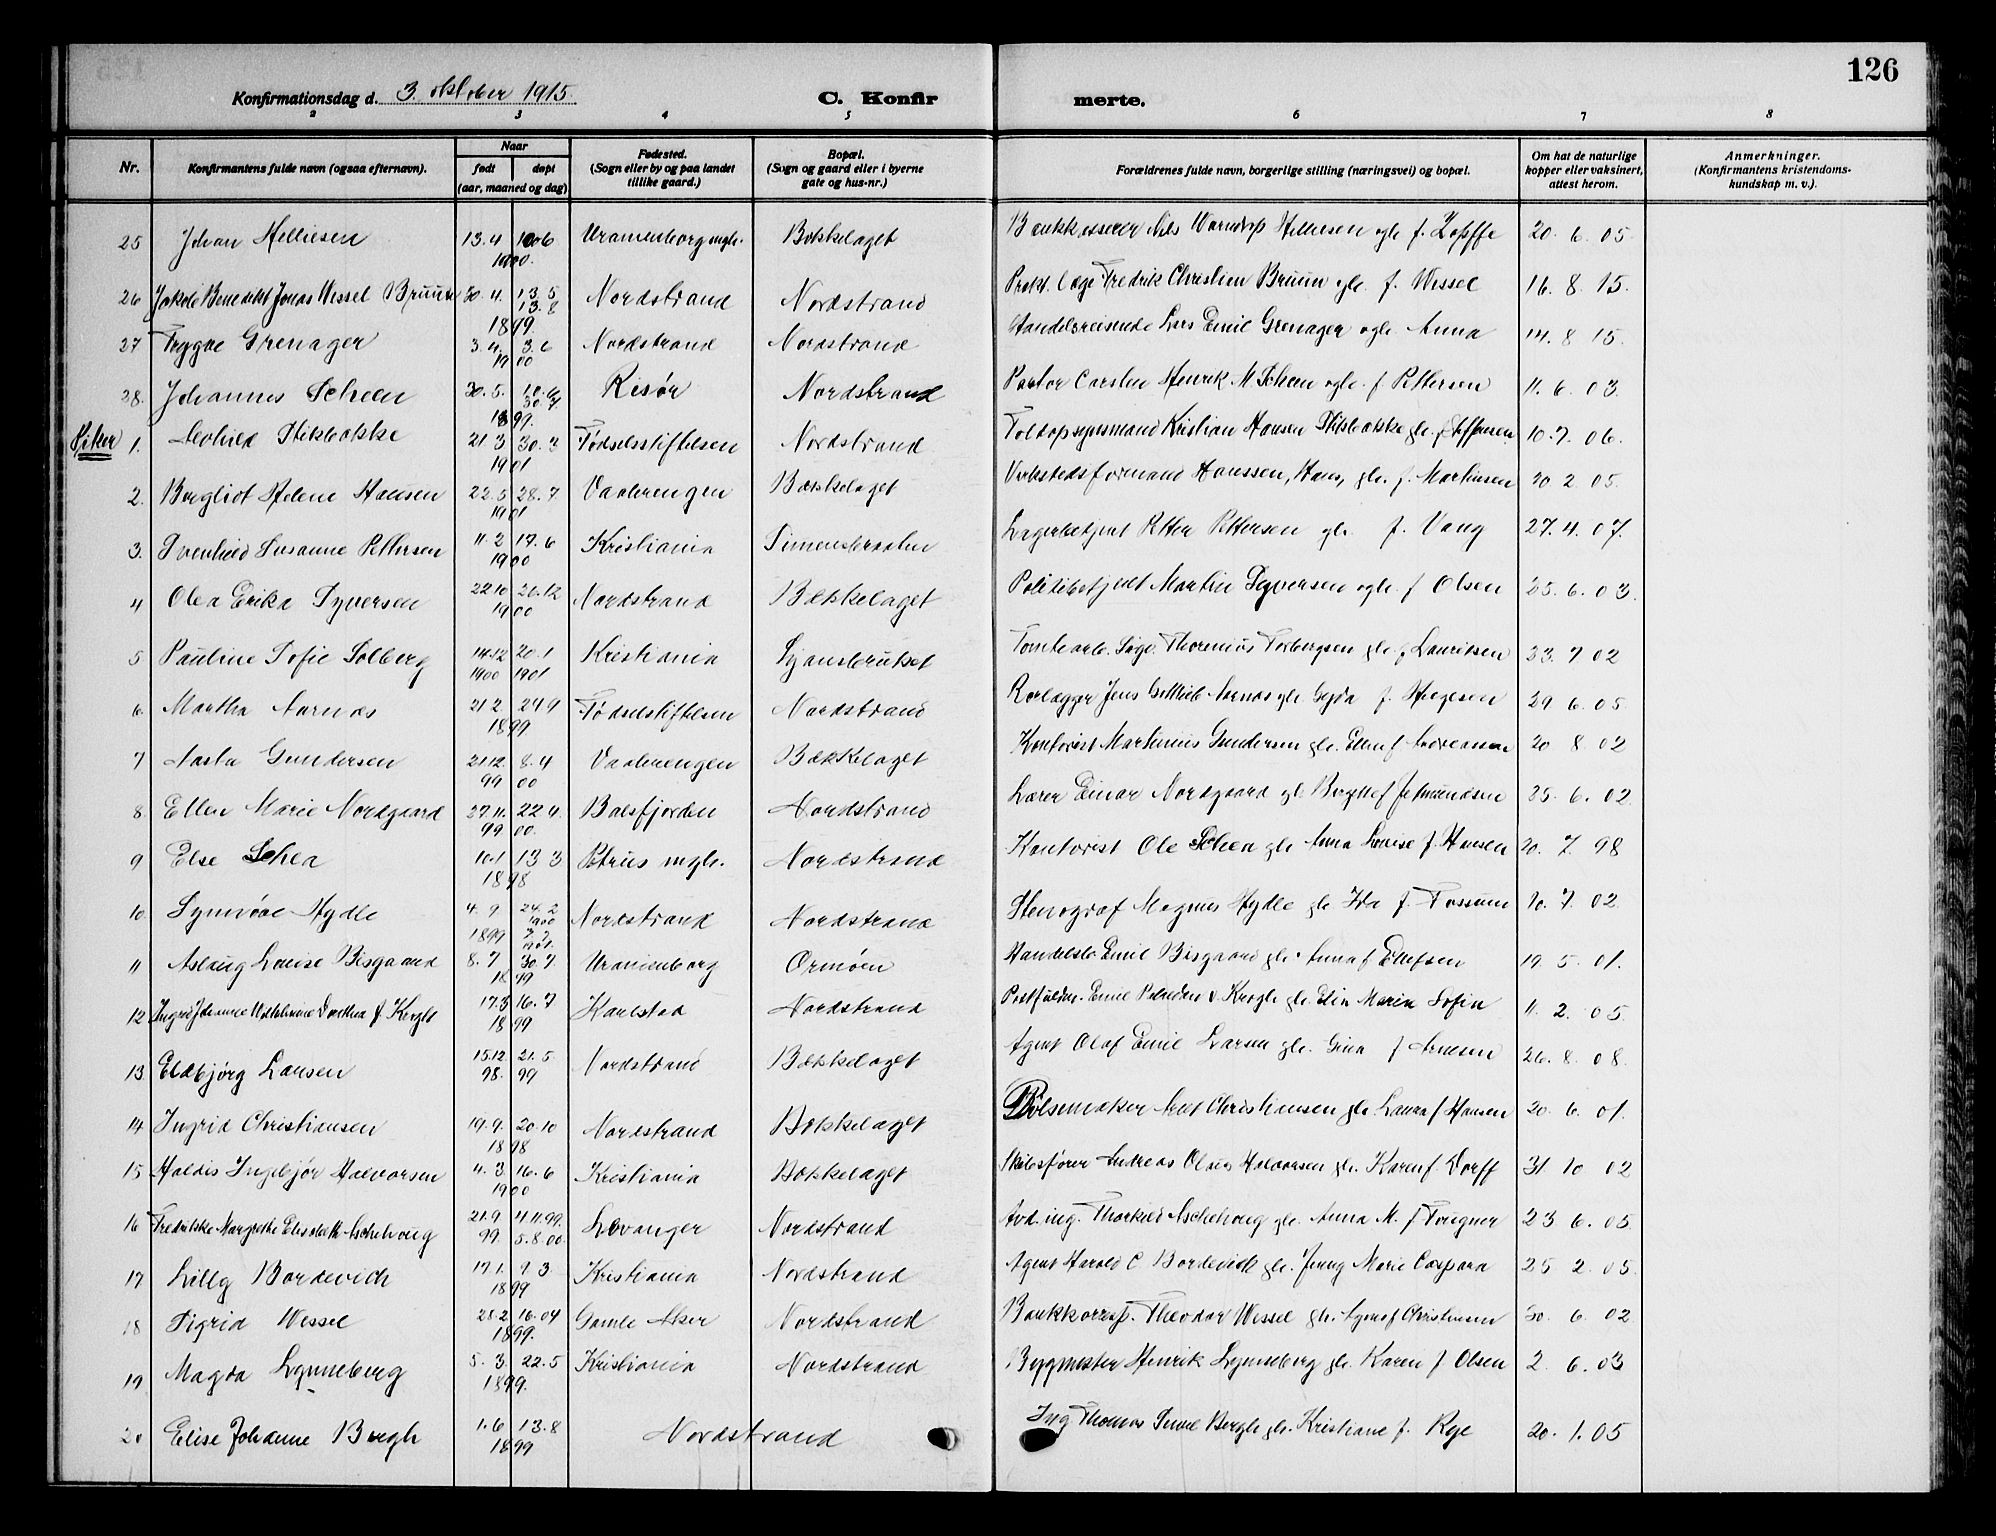 126
Konfirmationsdag d. 3. oktober 1915.
C. Konfir merte.
2 3 4 5 6 7 8
Nr.
Konfirmantens fulde navn (ogsaa efternavn).
Naar
født døpt
(aar, maaned og dag)
Fødested.
(Sogn eller by og paa landet
tillike gaard.)
Bopæl.
(Sogn og gaard eller i byerne
gate og hus-nr.)
Forældrenes fulde navn, borgerlige stilling (næringsvei) og bopæl.
Om hat de naturlige
kopper eller vaksinert,
attest herom.
Anmerkninger.
(Konfirmantens kristendoms-
kundskap m. v.).
25 Johan Helliesen 13.4 1900 Uranienborg mgh. Bækkelaget Bankkasserer Nils Helliesen f. 20. 6. 05.
26 Jakob Benedikt Jonas Wessel Bruun 30. 4. 13. 5 1899. Nordstrand Nordstrand Prakt. læge Fredrik Christian Bruun gh. f. Wessel 16. 8. 15.
27 Trygve Grenager 3. 4. 3. 6 1900 Nordstrand Nordstrand Handelsreisende Lars Emil Grenager ogh. Anna 14. 8 15.
28. Johannes Scheen 30. 5. 1899. Risør Nordstrand Pastor Carsten Henrik M. Scheen ogh. f Pettersen 11. 6. 03.
Piker
1. Stikbakke 21. 3 30. 1901 Fødselsstiftelsen Nordstrand Toldopsynsmand Kristian Hansen Stikbakke gh. f 10. 7. 06.
2. Bergliot Helene Hansen 22. 5 28. 7. 1901 Vaalerengen Bækkelaget Verkstedsformand Hanssen, Hans, gh. f. Martinsen 20. 2 05.
3. Svenhild Susanne Pettersen 11. 2 17. 6 1900 Kristiania Simensbraaten Lagerbetjent Petter Pettersen gh. f. Vang 27. 4. 07.
4 Olea Erika Syversen 22 10 26. 12 1900 Nordstrand Bækkelaget Politibetjent Martin Syversen ogh. f Olsen 25. 6. 03.
5 Pauline Sofie Solberg 14. 12 1900 20. 1 1901 Kristiania Ljansbruket Tomtearb. Thorenius Torbergsen gh. f Lauritsen 23. 7 02
6. Martha Aarnæs 21 2. 24 9 1899 Fødselsstiftelsen Nordstrand Rørlægger Jens Aarnæs gh. Gyda f. 29 6. 05.
7 Aasta Gundersen 21.12. 99 8. 4 00 Vaalerengen Bækkelaget Kontorist Martinius Gundersen gh. Ellen f Andreassen 20 8. 02
8. Ellen Marie Nordgaard 27. 11. 99 22 4. 00. Balsfjorden Nordstrand Lærer Einar Nordgaard gh. 25. 6. 02.
9 Else Schea 10. 1 13 3 1898 Petrus mgh. Nordstrand Kontorist Ole Schea gh. Anna Lovise f. Hansen 20. 7 98
10. Synnøve Hydle 4. 9 1899 24. 2 1900 Nordstrand Nordstrand Stenograf Magnus Hydle gh. Ida f. Fossum 10. 7. 02.
11 Aslaug Lovise Bisgaard 8. 7 30. 7. 1899 Uranienborg Ormøen Handelsb. Emil Bisgaard gh. Anna f Ellefsen 19. 5. 01.
12 Ingrid Johanne Dorthea Krogh 17.3 16. 7 1899 Karlstad Nordstrand Emil v. Krogh gh. Elin Maria Sofia 11. 2. 05.
13. Eldbjørg Larsen 15.12. 98. 21. 5. 99 Nordstrand Bækkelaget Agent Olaf Emil Larsen gh. Gina f Arnesen 26. 8. 08.
14 Ingrid Christiansen 19. 9. 20. 10 1898 Nordstrand Bækkelaget Pølsemaker Christiansen gh. Laura f Hansen 20. 6. 01.
15 Haldis Ingebjør Halvorsen 4. 3. 16. 6 1900 Kristiania Bækkelaget Skibsfører Andreas Olaus Halvorsen gh. Karen f Dorff 31. 10 02
16 Fredrikke Margrethe Elisabeth Aschehoug 21. 9 99. 4 11. 99. 5. 8. 00. Levanger Nordstrand Avd. ing. Thorkild Aschehoug gh. Anna M. f Tougner 23 6. 05.
17 Lilly Bordevich 17. 1. 9. 3. 1899 Kristiania Nordstrand Agent Harald C Bordevich gh. Jenny Marie Caspara 25 2. 05.
18 Sigrid Wessel 28. 2 16. 04 1899. Gamle Aker Nordstrand Bankkorresp. Theodor Wessel gh. Agna f Christensen 30. 6. 02
19 Magda Lynneberg 5. 3. 22. 5 1899. Kristiania Nordstrand Bygmester Henrik Lynneberg gh. Karen f. Olsen 2. 6. 03
20 Elise Johanne Bergh 1. 6 13. 8 1899 Nordstrand Ing Thomas Bergh gh. Kristiane f. Rye 20. 1. 05